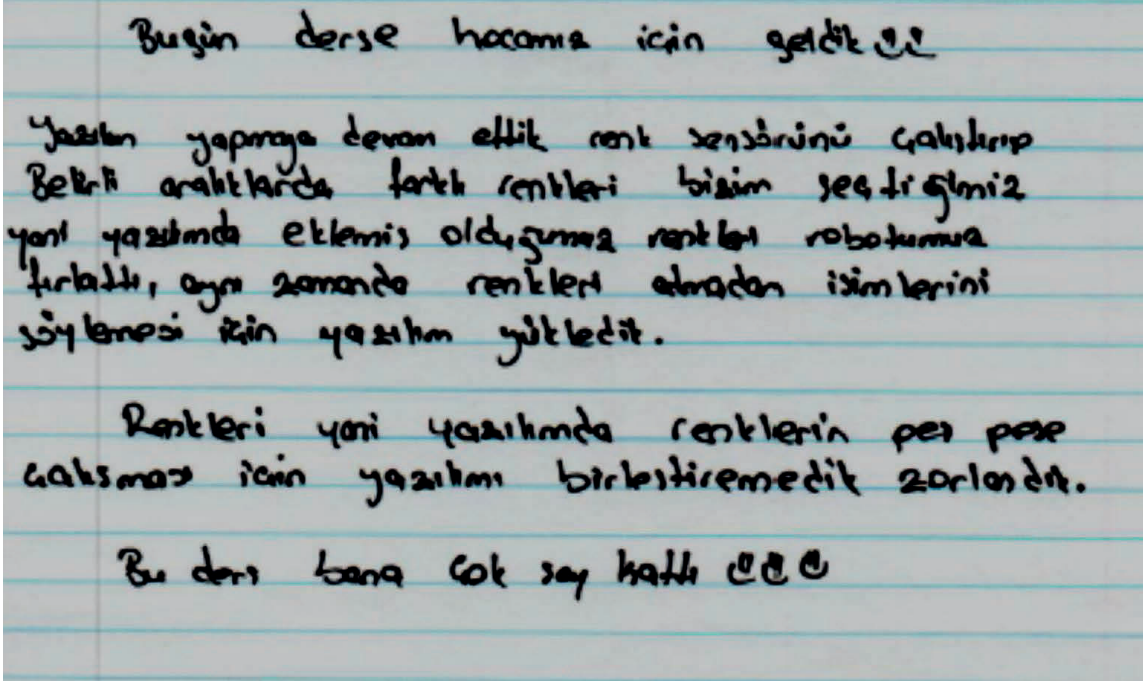 Bugün derse hocamız için geldik
Yazılım yapmaya devam ettik renk sensörünü çalıştırıp
Belirli aralıklarda farklı renkleri bizim seçtiğimiz
yani yazılımda eklemiş olduğumuz renkleri robotumuz
fırlattı, aynı zamanda renkleri atmadan isimlerini
söylemesi için yazılım yükledik.
Renkleri yani yazılımda renklerin peş peşe
çalışması için yazılımı birleştiremedik zorlandık.
Bu ders bana çok şey kattı